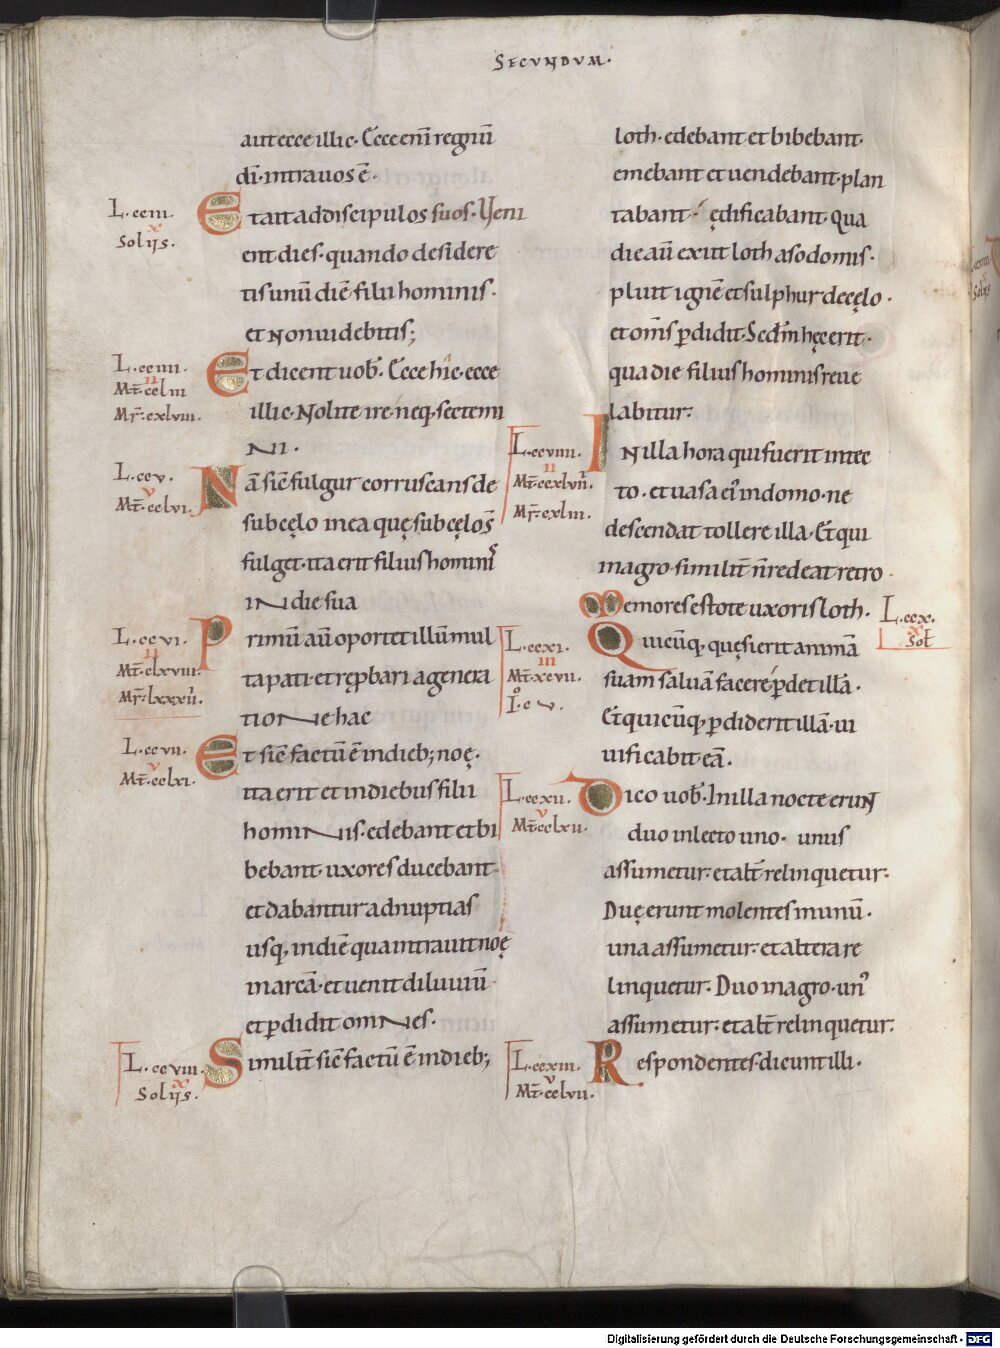 SECUNDUM·
aut ecce illic· Ecce eni̅ regnu̅
di̅· intra uos e̅·
L·cciii·
x
Solus·
Et ait ad discipulos suos· Veni
ent dies· quando desidere
tis unu̅ die̅ filii hominis·
et Non uidebitis;
L·cciiii·
II
Mt̅·cclIII
Mr̅·cxlviii·
Et dicent uob̅· Ecce hic· ecce
illic· Nolite ire· neq; sectemi
NI·
L·ccv·
v
Mt̅·cclvi·
Na̅ sic̅ fulgur corruscans de
sub cęlo in ea quę sub cęlo s̅
fulget· ita erit filius homini̅s
IN die sua
L·ccvi·
II
Mt̅·clxviii·
Mr̅·lxxxv·
Primu̅ au̅ oportet illu̅ mul
ta pati· et rep̱bari a genera
tioNe hac
L·ccvii·
v
Mt̅·cclxi·
Et sic̅ factu̅ e̅ in dieb; noę·
ita erit et in diebus filii
homiNis· edebant et bi
bebant· uxores ducebant·
et dabantur ad nuptias
usq; in die̅ qua intrauit noę
in arca̅· et uenit diluuiu̅·
et p̱didit omNes·
L·ccviii·
x
Solus·
Similit̅ sic̅ factu̅ e̅ in dieb;
loth· edebant et bibebant·
emebant et uendebant· plan
tabant· ędificabant· Qua
die au̅ exiit loth a sodomis·
pluit igne̅ et sulphur de cęlo·
et om̅s p̱didit· Sed̅m hęc erit·
qua die filius hominis reue
labitur·
L·ccviiii·
II
Mt̅·ccxlvii·
Mr̅·cxliii·
IN illa hora qui fuerit in tec
to· et uasa ei' in domo· ne
descendat tollere illa· Et qui
in agro· similit̅ n̅ redeat retro·
L·ccx·
x
Sol̅
Memores estote uxoris loth·
L·ccxi·
III
Mt̅·xcvii·
Io·cv·
Quicu̅q; quęsierit anima̅
suam salua̅ facere· p̱det illa̅·
Et quicu̅q; p̱diderit illa̅· ui
uificabit ea̅·
L·ccxii·
v
Mt̅·cclxii·
Dico uob̅· In illa nocte eruN̅t
duo in lecto uno· unus
assumetur· et alt̅ relinquetur·
Duę erunt molentes in unu̅·
una assumetur· et altera re
linquetur· Duo in agro· un'
assumetur· et alt̅ relinquetur·
L·ccxiii·
v
Mt̅·cclvii·
Respondentes· dicunt illi·
Digitalisierung gefördert durch die Deutsche Forschungsgemeinschaft - DFG